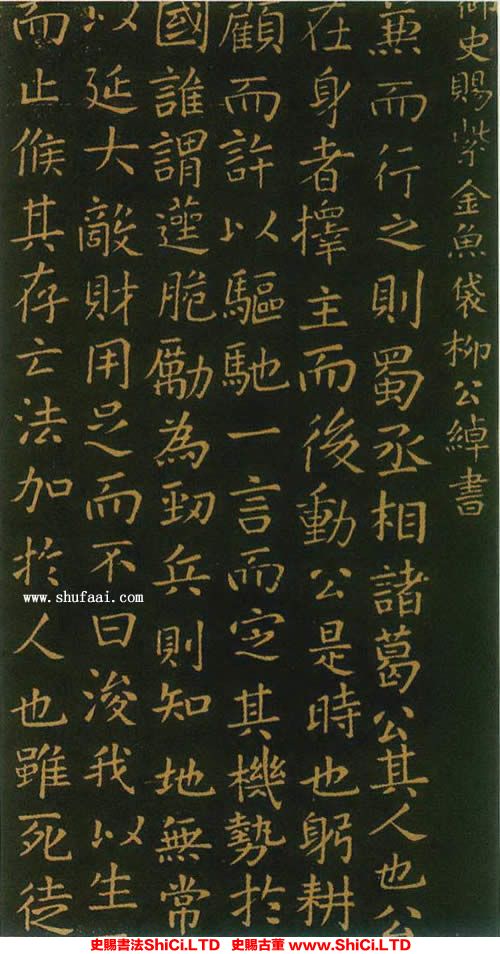 御史賜紫金魚袋柳公綽書
兼而行之則蜀丞相諸葛公其人也公
在身者擇主而後動公是時也躬耕
顧而許以驅馳一言而定其機勢於
國誰謂蓬脆勵為勁兵則知地無常
以延大敵財用足而不曰浚我以生
而止候其存亡法加於人也雖死徒
www.shufaai.com
史賜書法ShiCi.LTD 史賜古董 www.ShiCi.LTD